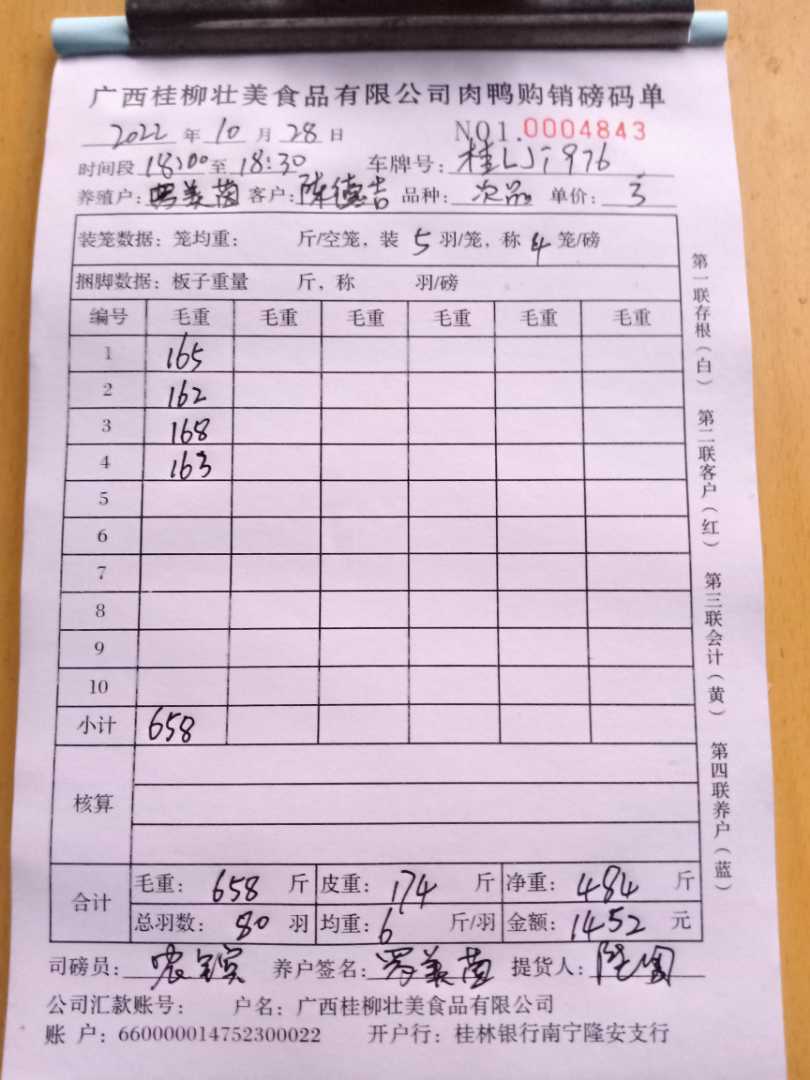 广西桂柳壮美食品有限公司肉鸭购销磅码单
2022 年 10 月 28 日 NO1.0004843
时间段 18:00 至 18:30 车牌号:
养殖户: 罗美茵 客户: 陈德吉 品种: 次品 单价: 3
装笼数据: 笼均重: 斤/空笼, 装 5 羽/笼, 称 4 笼/磅
捆脚数据: 板子重量 斤, 称 羽/磅
编号 毛重 毛重 毛重 毛重 毛重 毛重
1 165
2 162
3 168
4 163
5
6
7
8
9
10
小计 658
核算
合计
毛重: 658 斤 皮重: 174 斤 净重: 484 斤
总羽数: 80 羽 均重: 6 斤/羽 金额: 1452 元
司磅员: 养户签名: 罗美茵 提货人:
公司汇款账号: 户名: 广西桂柳壮美食品有限公司
账 户: 660000014752300022 开户行: 桂林银行南宁隆安支行
第一联存根(白) 第二联客户(红) 第三联会计(黄) 第四联养户(蓝)